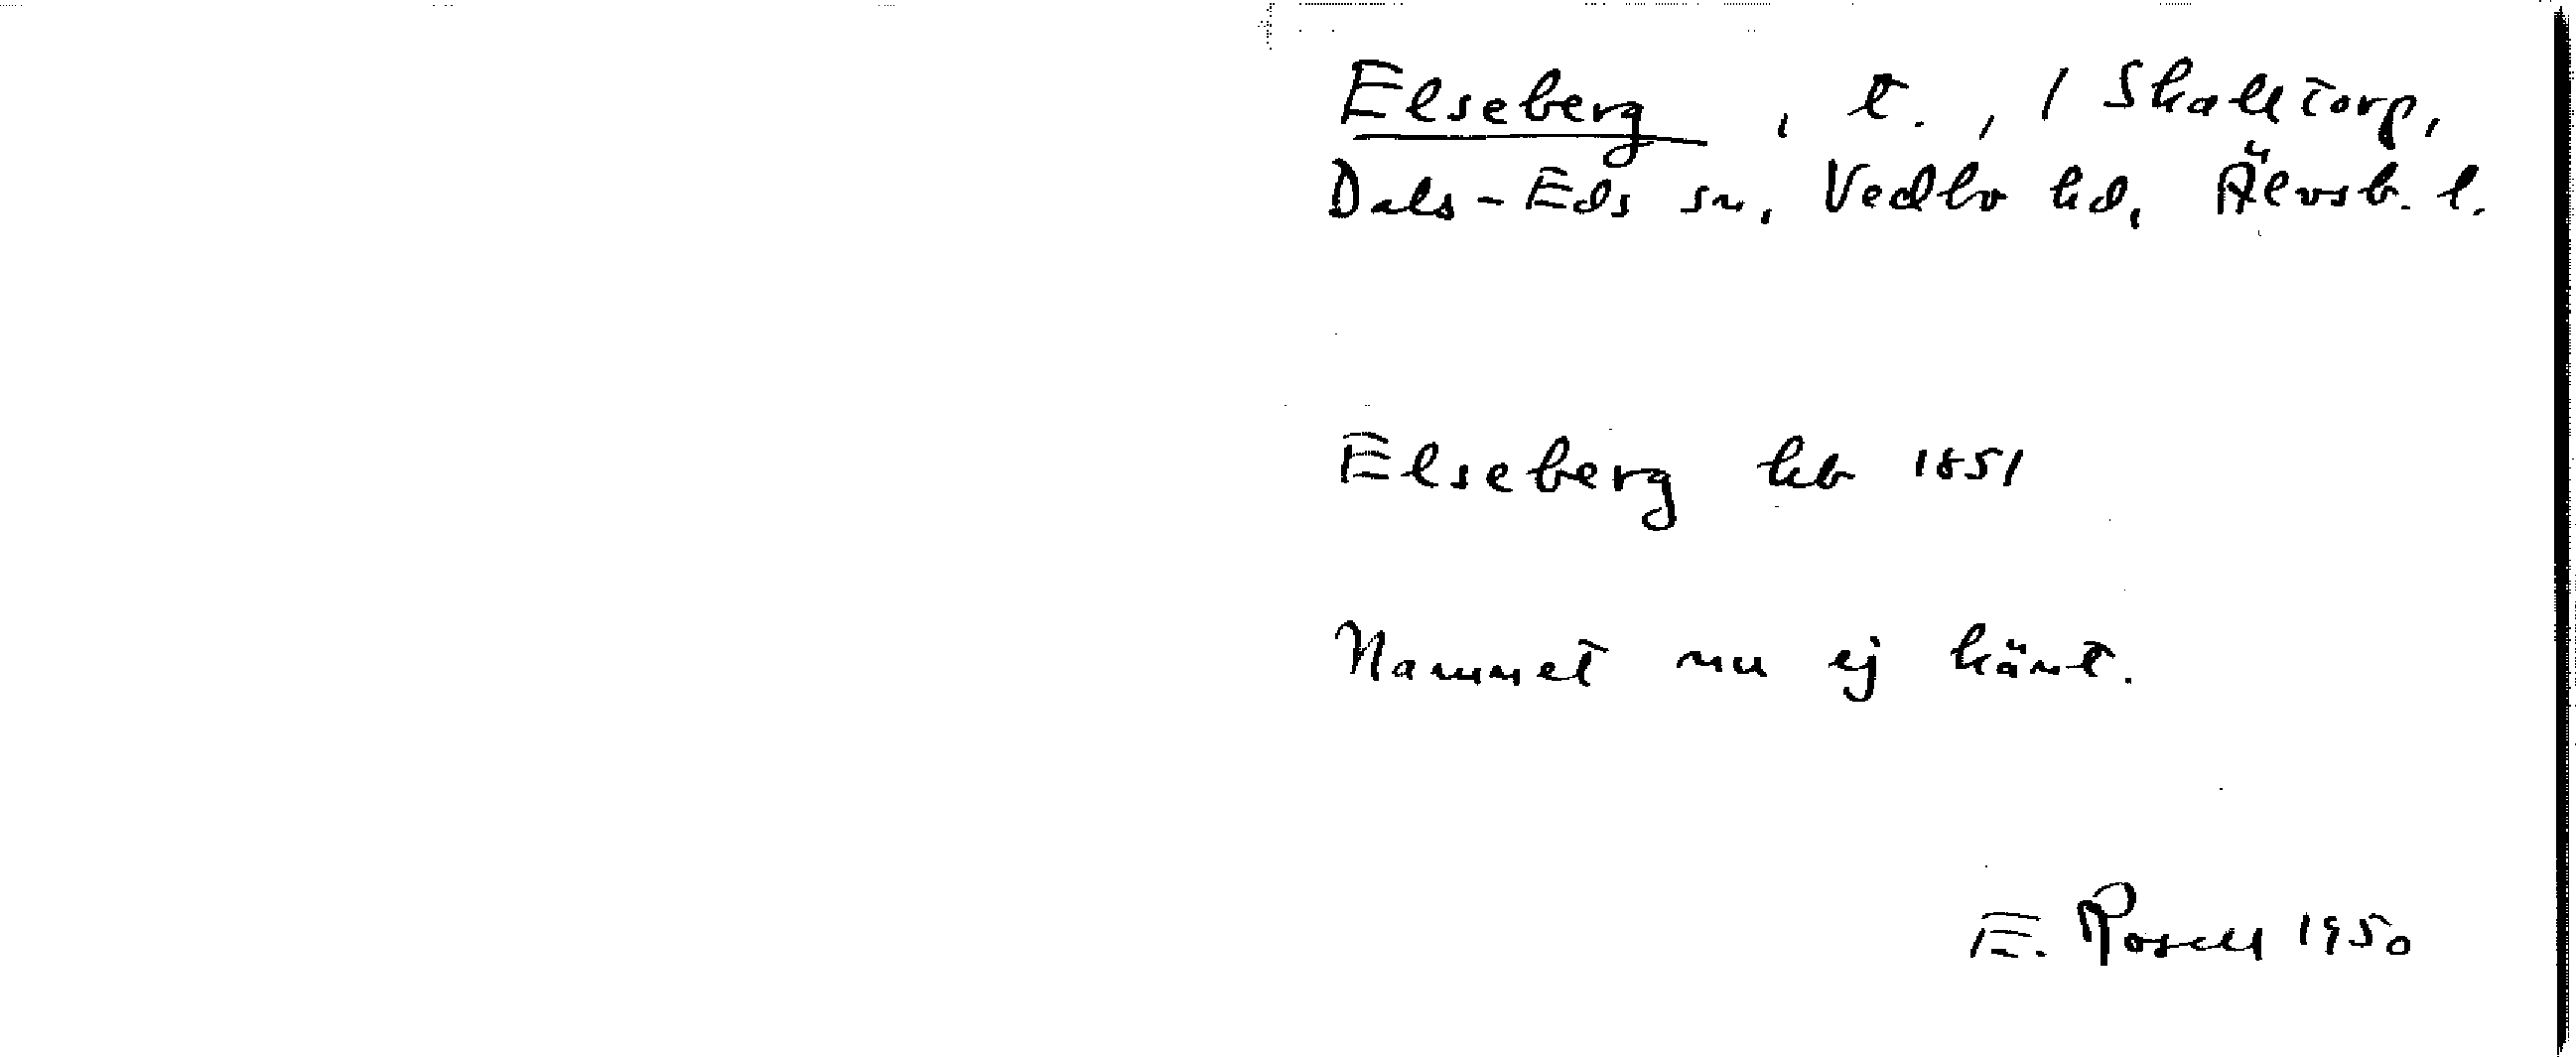 Elseberg, t., 1 Skälltorp,
Dals-Eds sn, Vedbo hd, Älvsb. l.
Elseberg hb 1851
Namnet nu ej känt.
E. Rosell 1950